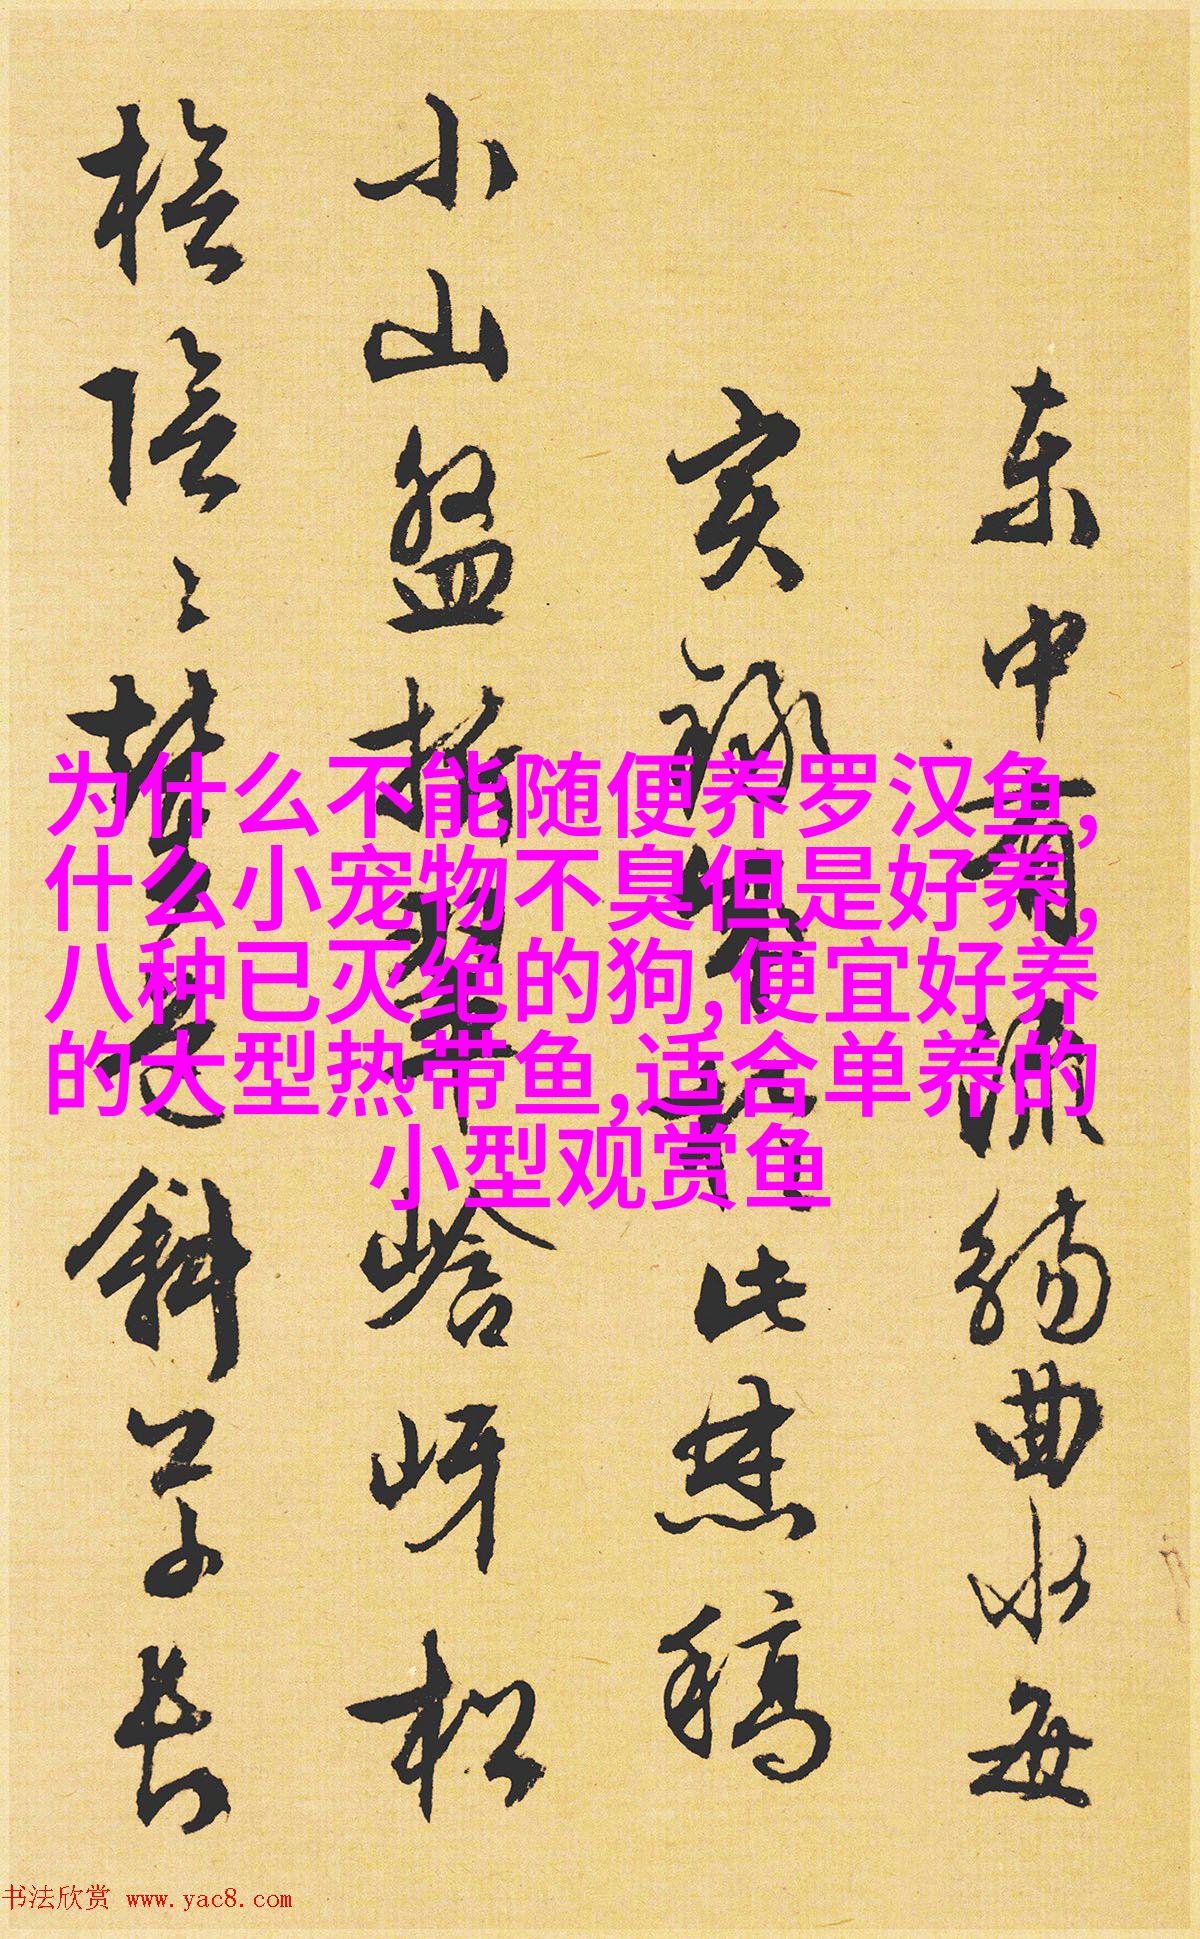 为什么不能随便养罗汉鱼,
什么小宠物不臭但是好养,
八种已灭绝的狗,便宜好养
的大型热带鱼,适合单养的
小型观赏鱼
东中有流觞曲水每
亥 此 稿
小山盤 翠 岈松
陰 斜 长
书法欣赏 www.yac8.com